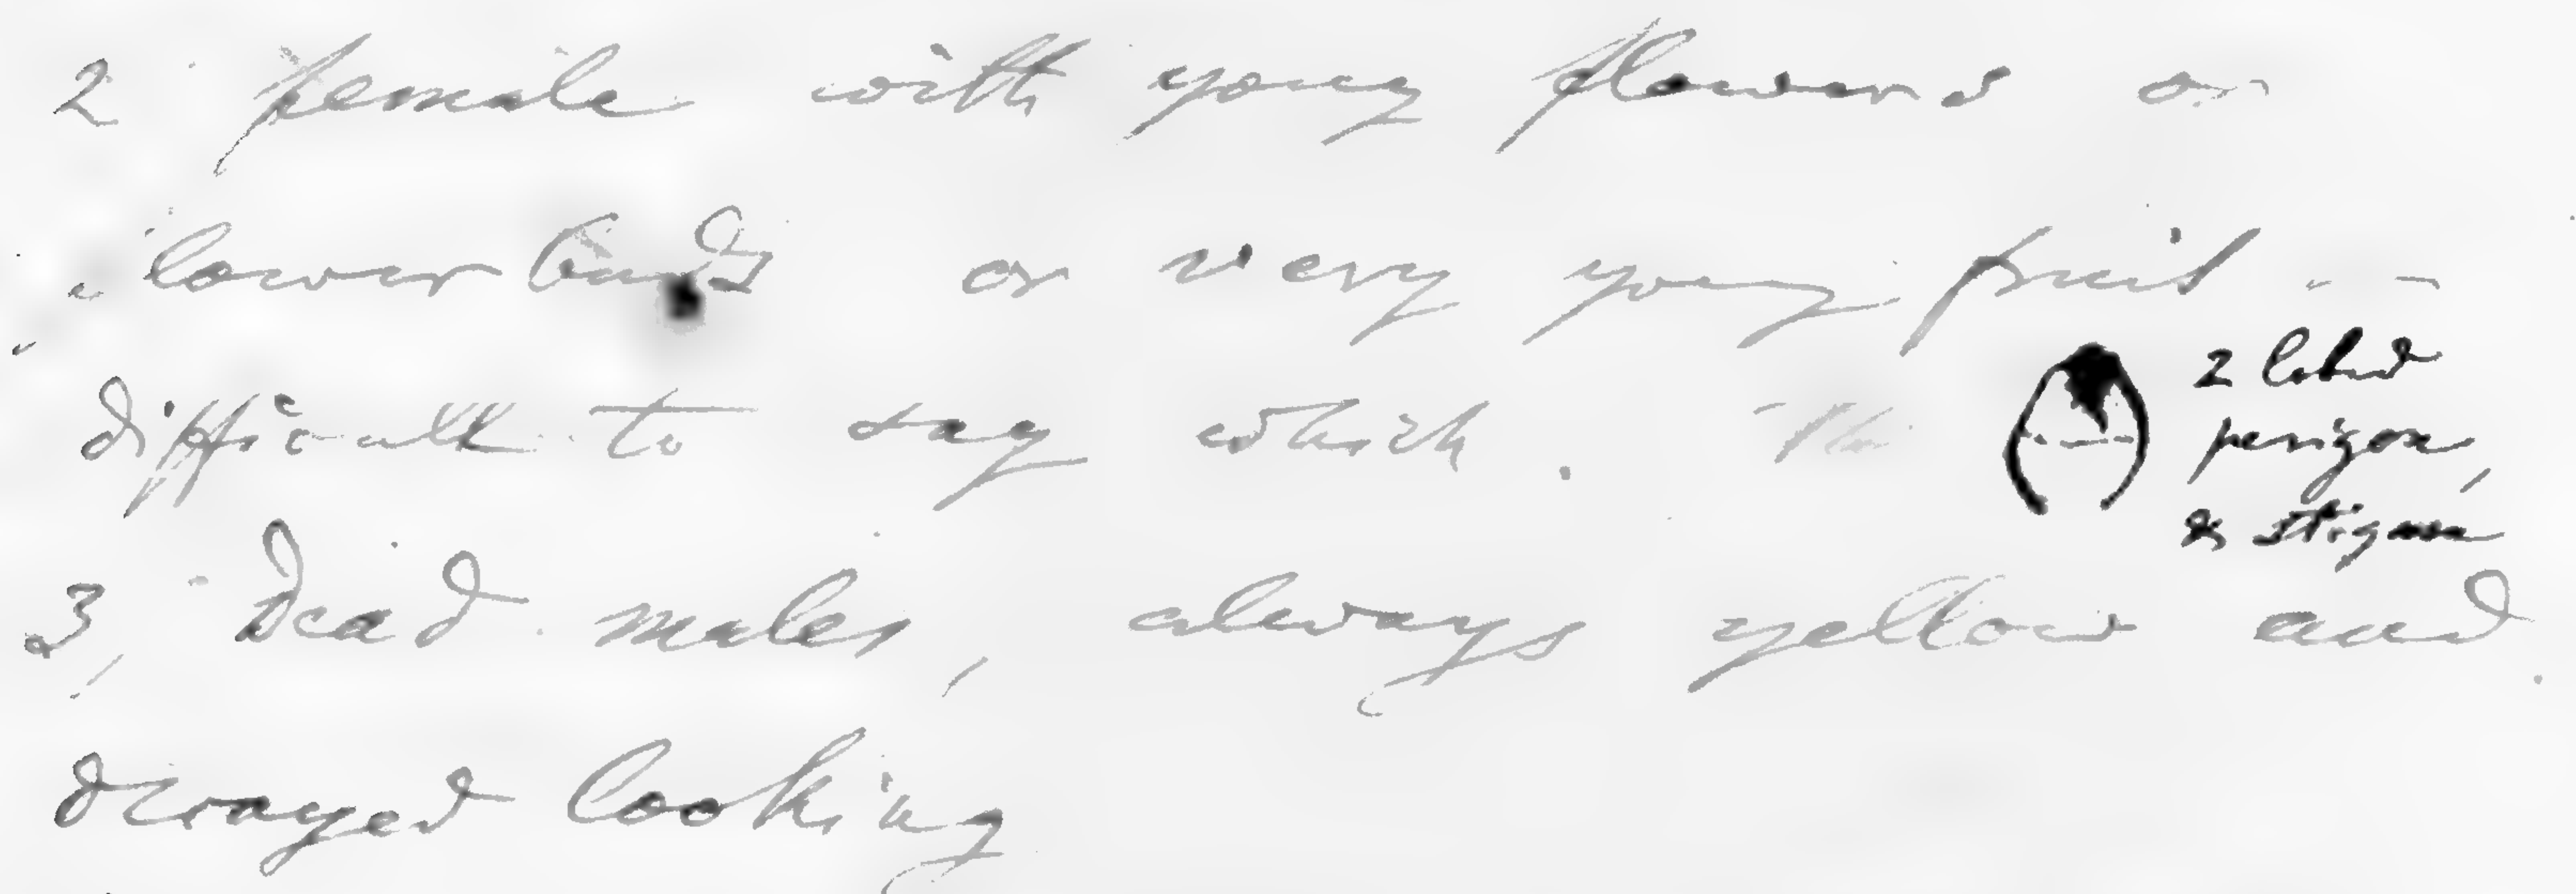 2 female with young flowers or
flower buds or very young fruit --
difficult to say which. The
2 lobed
perigon,
& stigma
3, Dead males, always yellow and
decayed looking